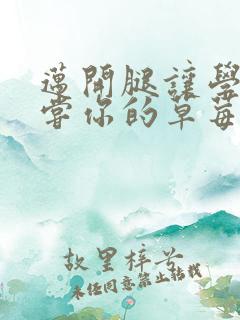 邁開腿讓學
嘗你的草莓
故里梓芩
未经同意禁止转载